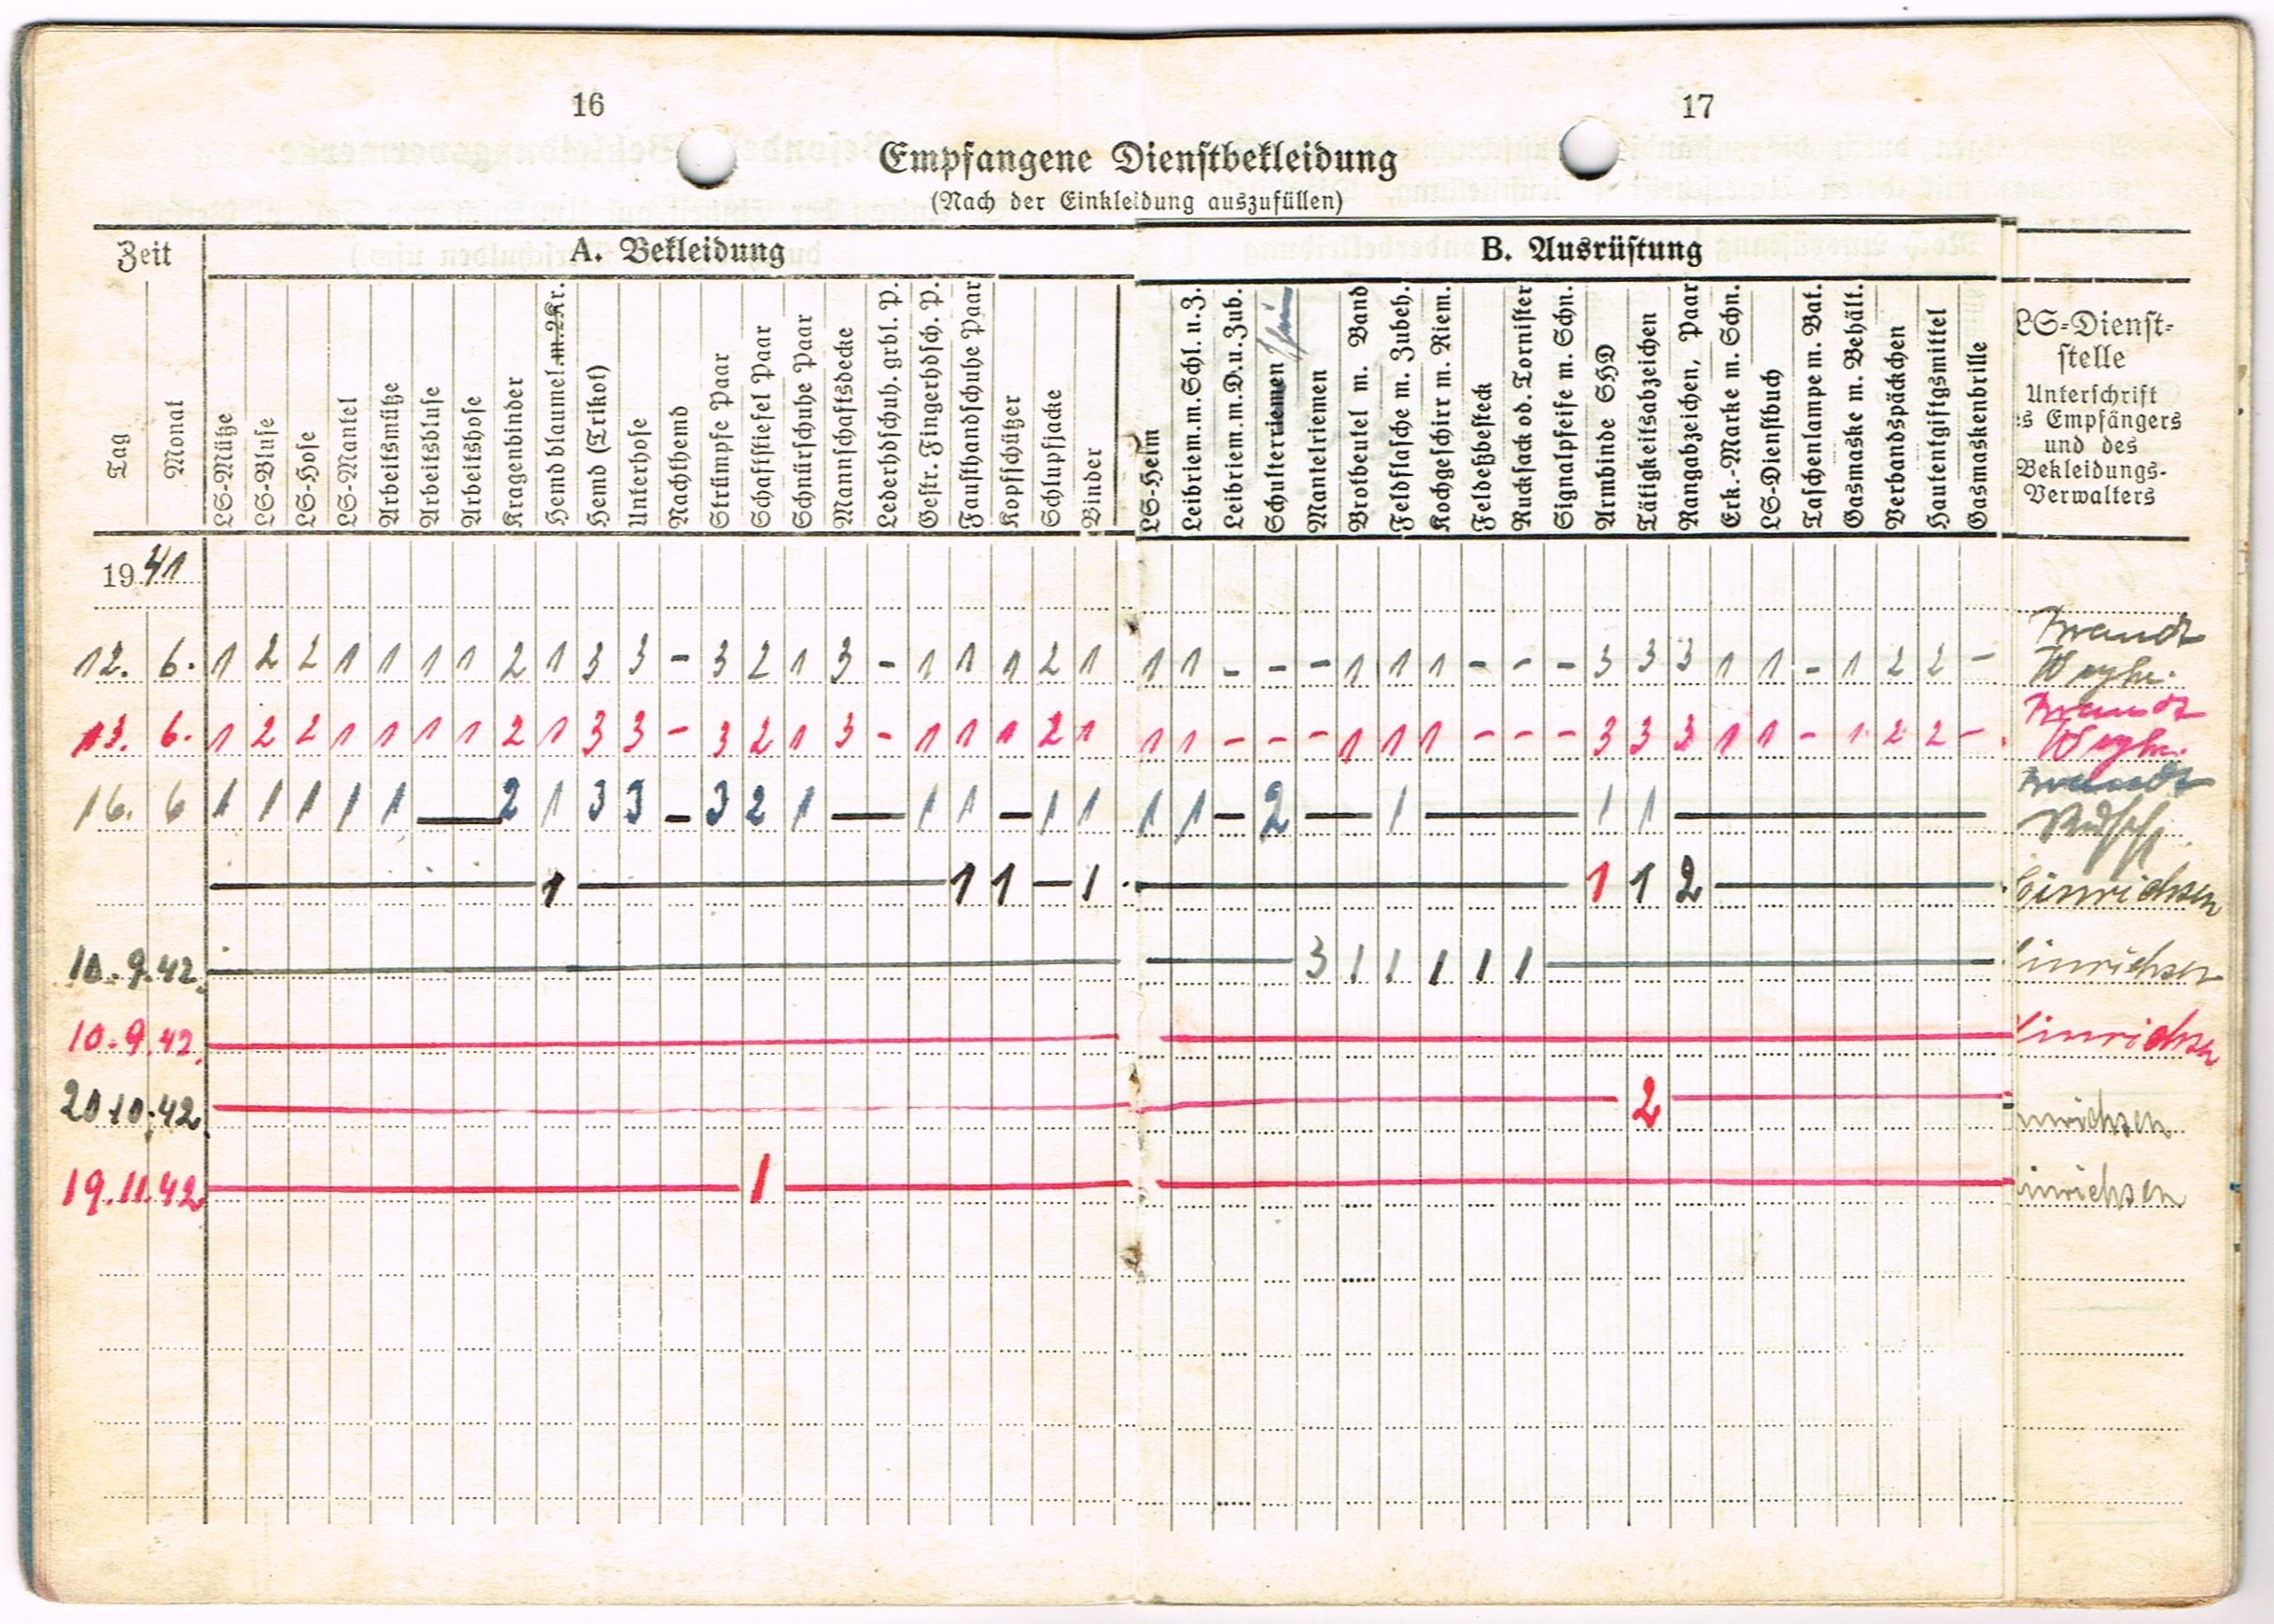 16
17
Empfangene Dienstbekleidung
(Nach der Einkleidung auszufüllen)
Zeit
A. Bekleidung
B. Ausrüstung
Tag
Monat
LS-Mütze
LS-Bluse
LS-Hose
LS-Mantel
Arbeitsmütze
Arbeitsbluse
Arbeitshose
Kragenbinder
Hemd blaumel. m. 2 Kr.
Hemd (Trikot)
Unterhose
Nachthemd
Strümpfe Paar
Schaftstiefel Paar
Schnürschuhe Paar
Mannschaftsdecke
Lederhdschuh. grbl. P.
Gestr. Fingerhdsch. P.
Fausthandschuhe Paar
Kopfschützer
Schlupfjacke
Binder
LS-Helm
Leibriem. m. Schl. u. Z.
Leibriem. m. D. u. Zub.
Schulterriemen
Mantelriemen
Brotbeutel m. Band
Feldflasche m. Zubeh.
Kochgeschirr m. Riem.
Feldeßbesteck
Rucksack od. Tornister
Signalpfeife m. Schn.
Armbinde SHD
Tätigkeitsabzeichen
Rangabzeichen, Paar
Erk.-Marke m. Schn.
LS-Dienstbuch
Taschenlampe m. Bat.
Gasmaske m. Behält.
Verbandspäckchen
Hautentgiftgsmittel
Gasmaskenbrille
LS-Dienst-
stelle
Unterschrift
es Empfängers
und des
Bekleidungs-
Verwalters
1941
12. 6. 1 2 2 1 1 1 1 2 1 3 3 - 3 2 1 3 - 1 1 1 2 1 1 1 - - - 1 1 1 - - - 3 3 3 1 1 - 1 2 2 - Brandt
13. 6. 1 2 2 1 1 1 1 2 1 3 3 - 3 2 1 3 - 1 1 1 2 1 1 1 - - - 1 1 1 - - - 3 3 3 1 1 - 1 2 2 - Brandt
16. 6 1 1 1 1 1 — 2 1 3 3 - 3 2 1 — 1 1 - 1 1 1 1 - 2 — 1 — 1 1 — Brandt
— 1 — 1 1 — 1 — 1 1 2 — Hinrichsen
10. 9. 42. — — 3 1 1 1 1 1 — inrichsen
10. 9. 42. — — inrichsen
20.10.42. — — 2 — nrichsen
19.11.42. — 1 — — inrichsen